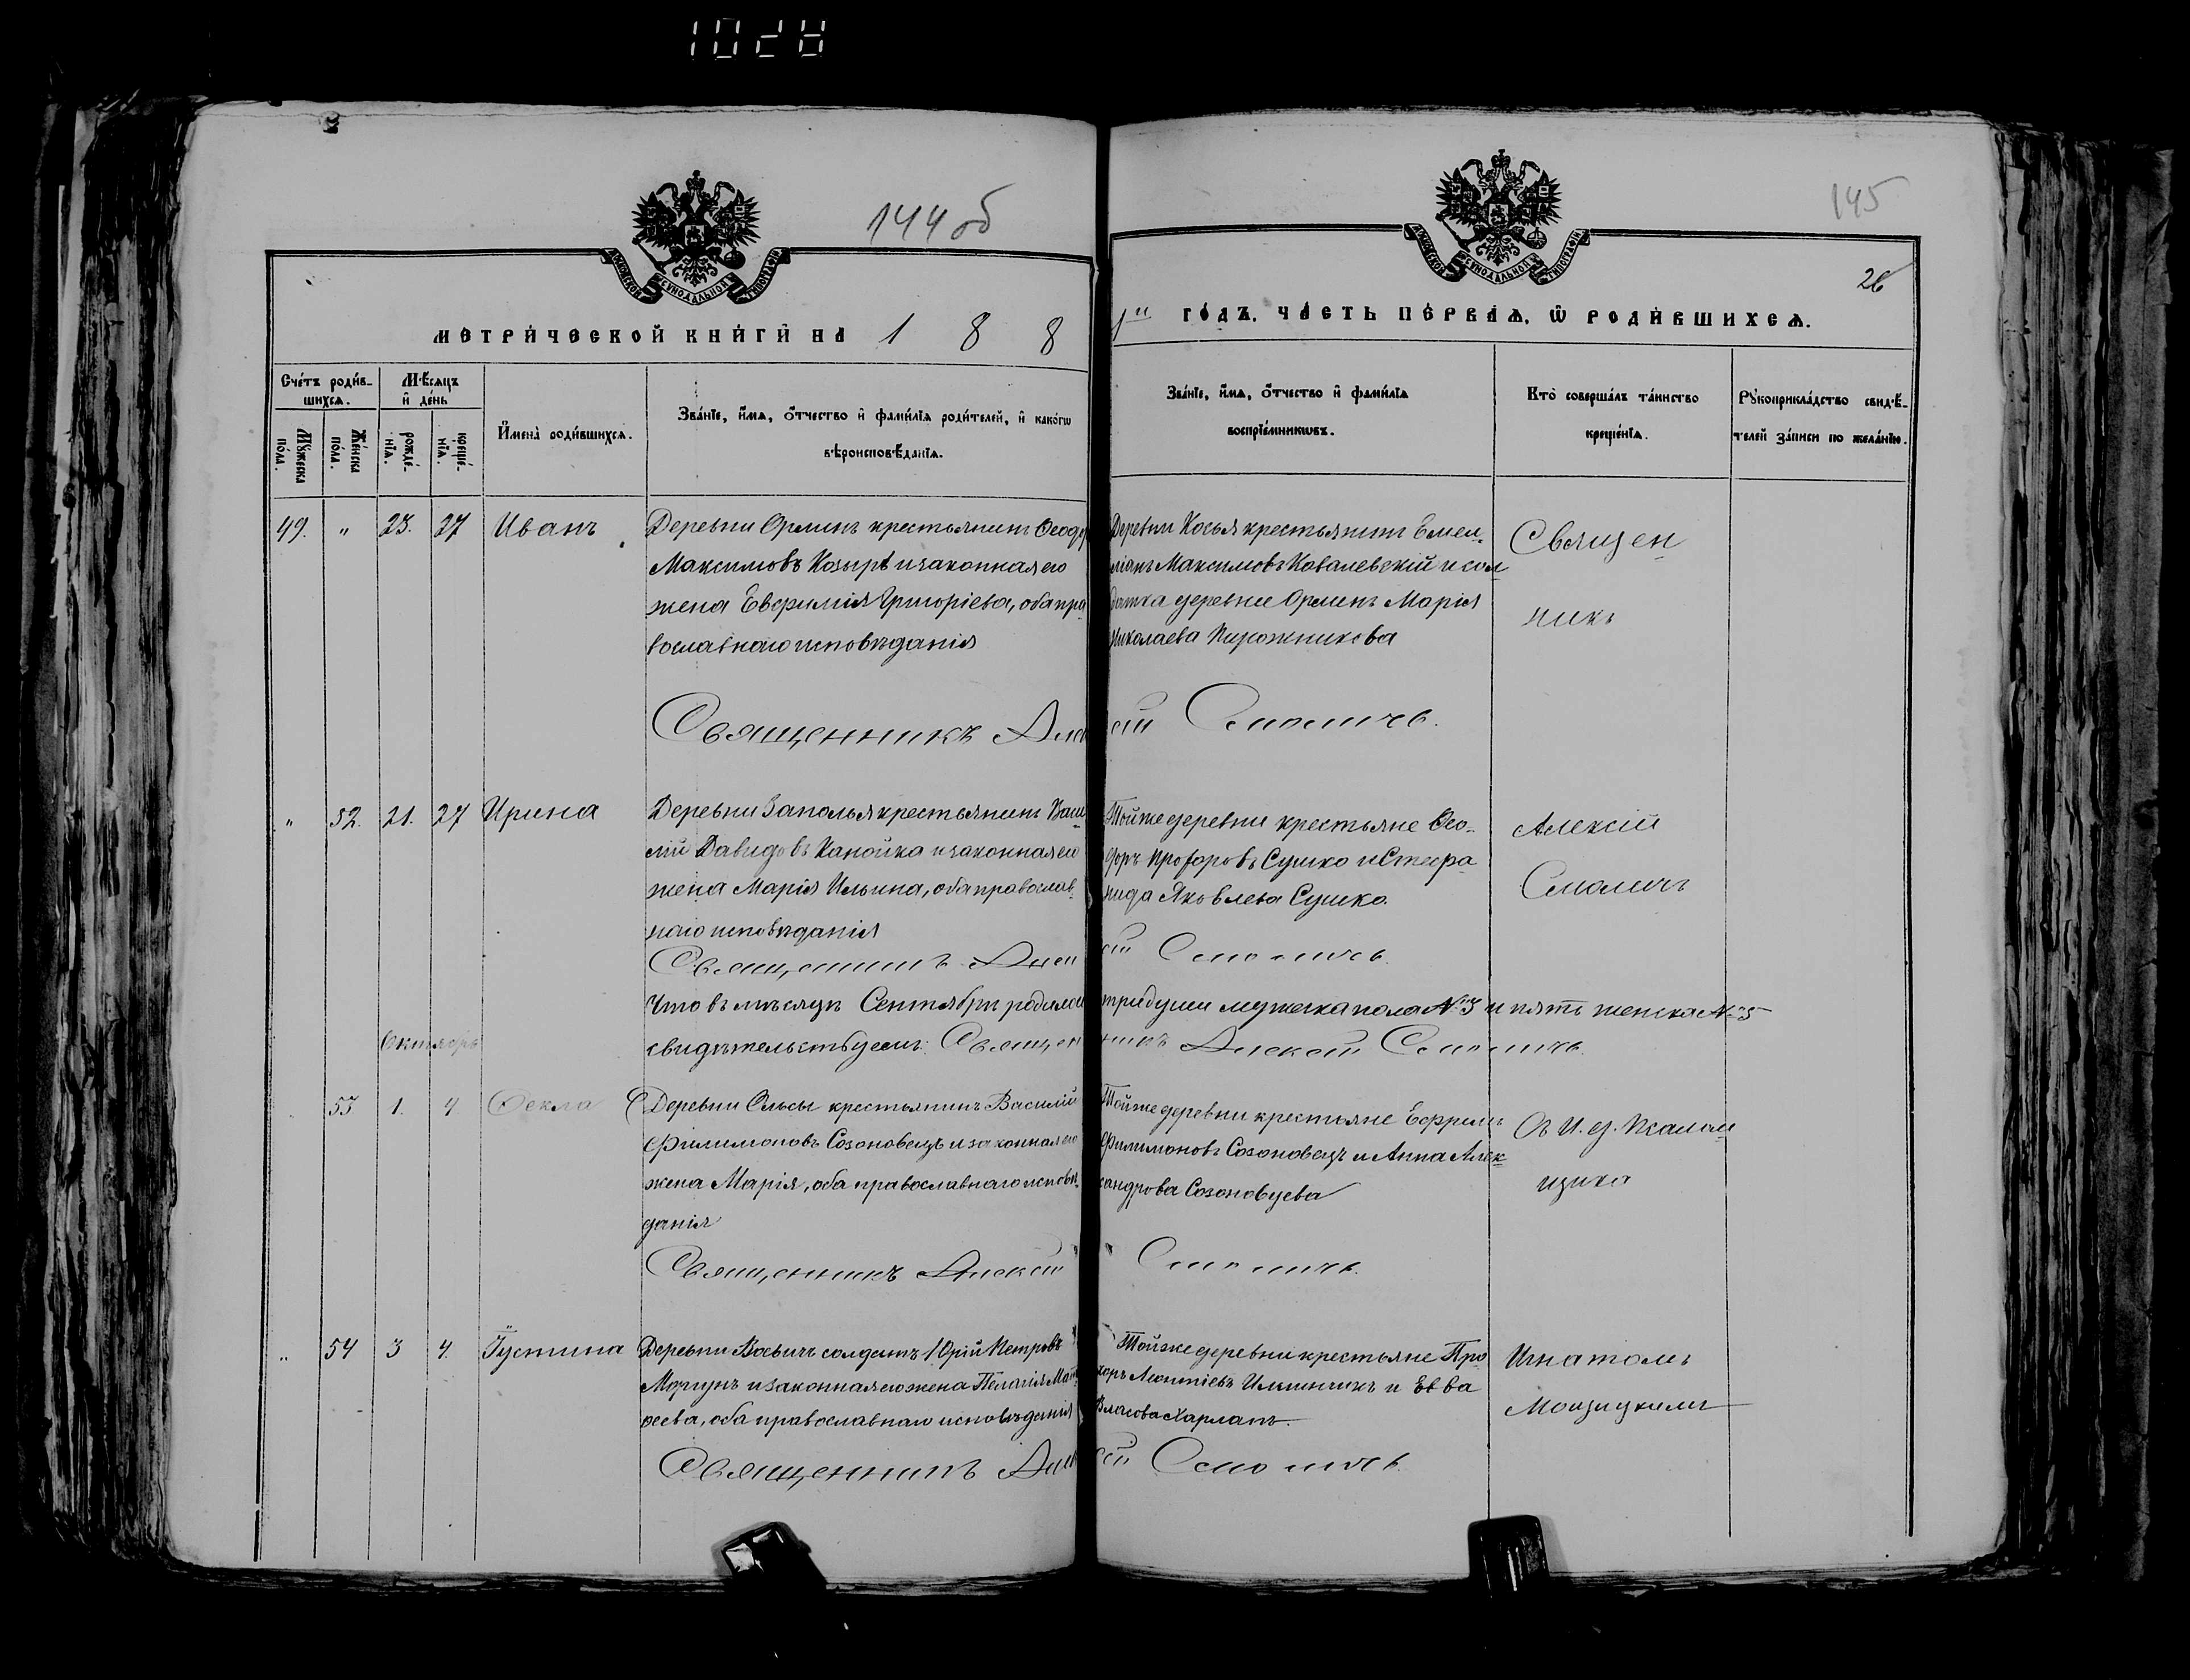 144 об
145
26
МОСКОВСКОЙ СѴНОДАЛЬНОЙ ТИПОГРАФІИ
МОСКОВСКОЙ СѴНОДАЛЬНОЙ ТИПОГРАФІИ
МЕТРИ́ЧЕСКОЙ КНИ́ГИ НА 1 8 8
ГО́ДЪ. ЧА́СТЬ ПЕ́РВАЯ, Ѡ РОДИ́ВШИХСЯ.
Сче́тъ роди́в-
шихся.
Мѣ́сяцъ
и де́нь
Му́жеска по́ла.
Же́нска по́ла.
рожде́нїя.
креще́нїя.
И҆мена̀ роди́вшихся.
Зва́нїе, и҆́мя, о҆́тчество и҆ фами́лїя роди́телей, и҆ како́гѡ
вѣроисповѣ́данїя.
Зва́нїе, и҆́мя, о҆́тчество и҆ фами́лїя
воспрїе́мникѡвъ.
Кто̀ соверша́лъ та́инство
креще́нїя.
Рꙋкоприкла́дство свидѣ́-
телей за́писи по жела́нїю.
49. " 23. 27 Иванъ
Деревни Орлинъ крестьянинъ Ѳеодр
Максимовъ Козырь и законная его
жена Евфимія Григоріева, оба пра-
вославнаго исповѣданія
Деревни Косья крестьянинъ Емел-
ліанъ Максимовъ Ковалевскій и сол
датка деревни Орлинъ Марія
Николаева Пирожникова
Священ
никъ
Священникъ Алексій Смоличъ.
" 52. 21. 27 Ирина
Деревни Заполья крестьянинъ Васи-
лій Давидовъ Канойка и законная его
жена Марія Ильина, оба православ-
наго исповѣданія
Тойже деревни крестьяне Ѳео-
доръ Прохоровъ Сушко и Стефа-
нида Яковлева Сушко.
Алексій
Смоличъ
Священникъ Алексій Смоличъ.
Что въ мѣсяцѣ Сентябрѣ родилось три души мужеска пола №3 и пять женска №5
свидѣтельствуемъ: Священникъ Алексій Смоличъ.
Октябрь
53 1. 4 Ѳекла
Деревни Ольсы крестьянинъ Василій
Филимоновъ Созоновецъ и законная его
жена Марія, оба православнаго исповѣ-
данія
Тойже деревни крестьяне Ефремъ
Филимоновъ Созоновецъ и Анна Алек-
сандрова Созоновцева
Съ И. д. Псалом
щика
Священникъ Алексій Смоличъ.
" 54 3 4. Іустина
Деревни Воевичъ солдатъ Юрій Петровъ
Моргунъ и законная его жена Пелагія Мат-
ѳеева, оба православнаго исповѣданія
Тойже деревни крестьяне Про-
хоръ Леонтіевъ Ильинчикъ и Евва
Власова Харланъ.
Игнатомъ
Священникъ Алексій Смоличъ.